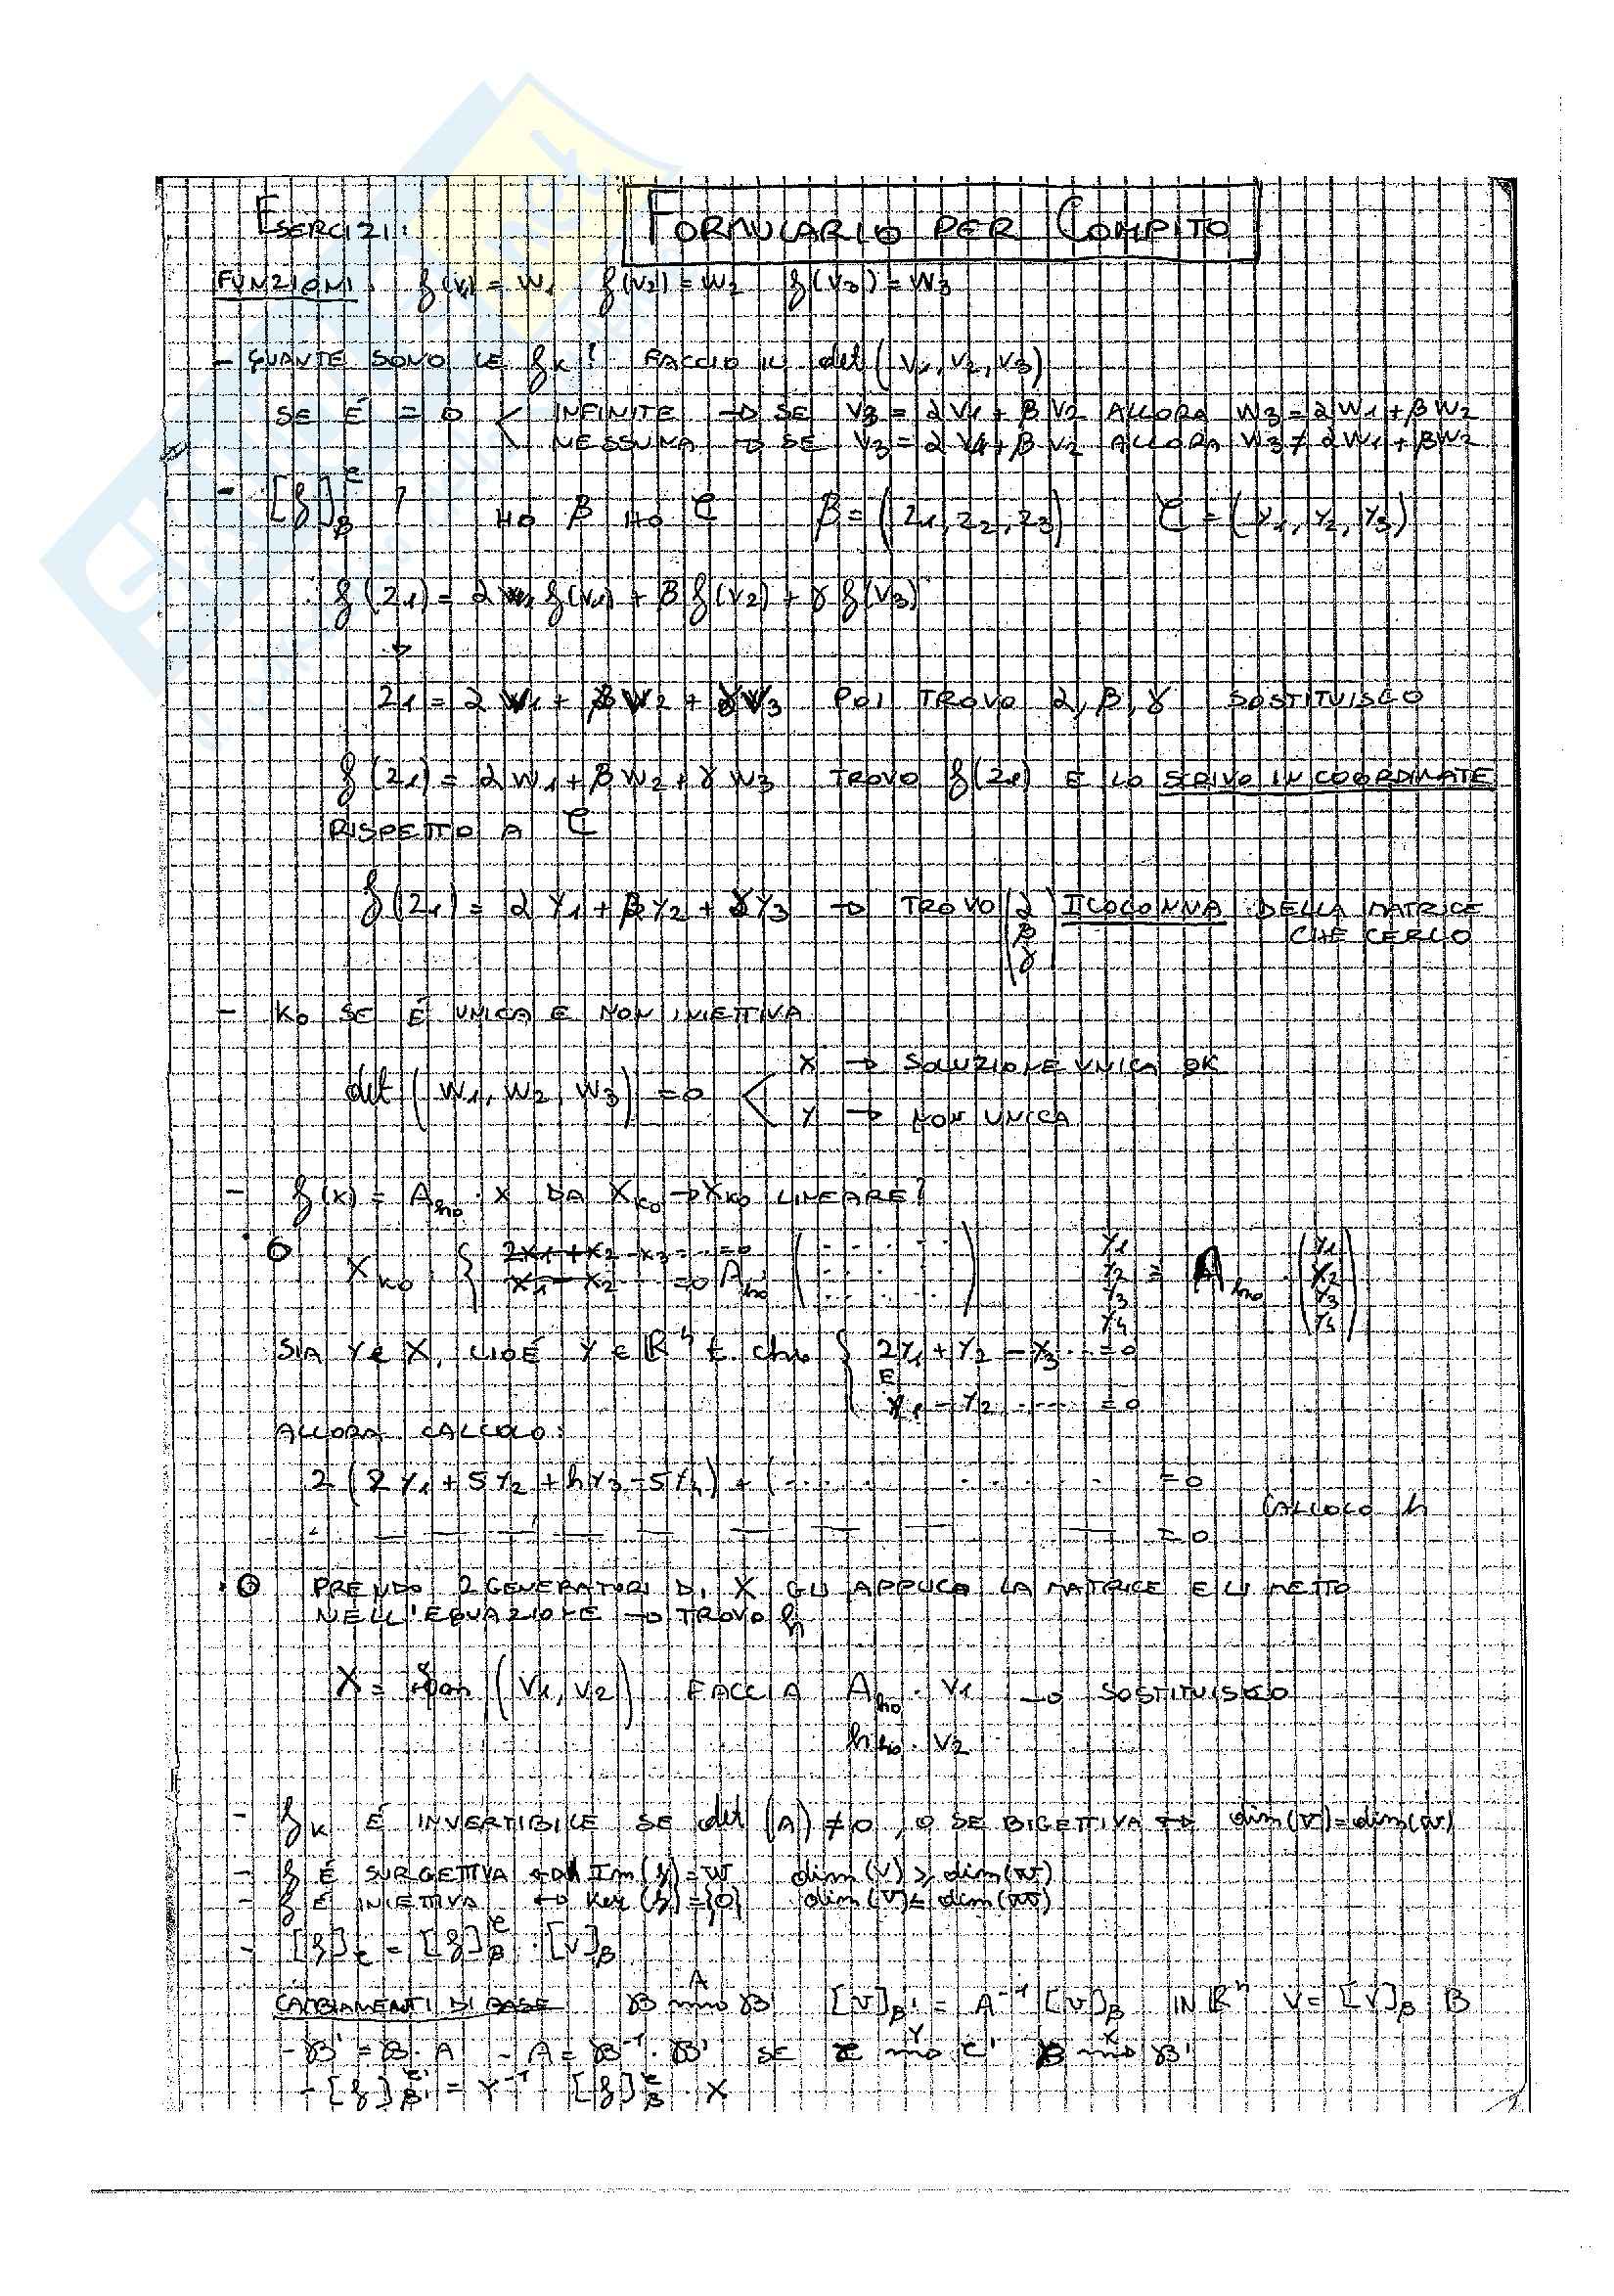 ESERCIZI: FORMULARIO PER COMPITO
FUNZIONI: f(v1) = w1 f(v2) = w2 f(v3) = w3
- QUANTE SONO LE fK? FACCIO IL det(v1, v2, v3)
SE É = 0 < INFINITE → SE v3 = αv1 + βv2 ALLORA w3 = αw1 + βw2
NESSUNA → SE v3 = αv1 + βv2 ALLORA w3 ≠ αw1 + βw2
- [f]_β^C ? HO β HO C β = (z1, z2, z3) C = (y1, y2, y3)
f(z1) = α f(v1) + β f(v2) + γ f(v3)
z1 = αv1 + βv2 + γv3 POI TROVO α, β, γ SOSTITUISCO
f(z1) = αw1 + βw2 + γw3 TROVO f(z1) E LO SCRIVO IN COORDINATE
RISPETTO A C
f(z1) = αy1 + βy2 + γy3 → TROVO (α β γ) I COLONNA DELLA MATRICE
CHE CERCO
- K0 SE É UNICA E NON INIETTIVA
det(w1, w2, w3) = 0 < X → SOLUZIONE UNICA OK
Y → NON UNICA
- f(x) = A_h0 · X DA X_K0 → X_K0 LINEARE?
X_K0 : { 2x1 + x2 - x3 = ... = 0
x1 - x2 ... = 0 A_h0 (...) y1 y2 y3 y4 = A_h0 · (y1 y2 y3 y4)
SIA Y ∈ X, CIOÉ Y ∈ R^4 t. che { 2y1 + y2 - y3 ... = 0
E
y1 - y2 ..... = 0
ALLORA CALCOLO:
2(2y1 + 5y2 + hy3 - 5y4) + (.... ...... = 0
CALCOLO h
= 0
PRENDO 2 GENERATORI DI X GLI APPLICO LA MATRICE E LI METTO
NELL'EQUAZIONE → TROVO h
X = Span(v1, v2) FACCIA A_h0 · v1 → SOSTITUISCO
· v2
- fK É INVERTIBILE SE det(A) ≠ 0, O SE BIGETTIVA ↔ dim(V) = dim(W)
- f É SURGETTIVA ↔ Im(f) = W dim(V) ≥ dim(W)
- f É INIETTIVA ↔ Ker(f) = {0} dim(V) ≤ dim(W)
- [f]_C = [f]_β^C · [v]_β
CAMBIAMENTI DI BASE B →^A B' [v]_β' = A^-1 [v]_β IN R^n V = [v]_β B
- B' = B · A - A = B^-1 · B' SE C →^Y C' B →^X B'
- [f]_β'^C' = Y^-1 [f]_β^C · X